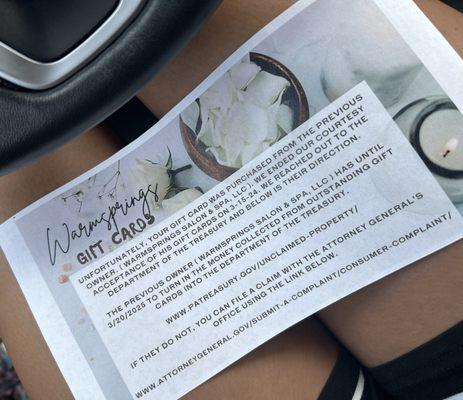 Warmsprings
GIFT CARDS
UNFORTUNATELY, YOUR GIFT CARD WAS PURCHASED FROM THE PREVIOUS
OWNER. ( WARMSPRINGS SALON & SPA, LLC ). WE ENDED OUR COURTESY
ACCEPTANCE OF HIS GIFT CARDS ON 3-15-24. WE REACHED OUT TO THE
DEPARTMENT OF THE TREASURY AND BELOW IS THEIR DIRECTION.
THE PREVIOUS OWNER ( WARMSPRINGS SALON & SPA, LLC ) HAS UNTIL
3/20/2025 TO TURN IN THE MONEY COLLECTED FROM OUTSTANDING GIFT
CARDS INTO THE DEPARTMENT OF THE TREASURY.
WWW.PATREASURY.GOV/UNCLAIMED-PROPERTY/
IF THEY DO NOT, YOU CAN FILE A CLAIM WITH THE ATTORNEY GENERAL'S
OFFICE USING THE LINK BELOW.
WWW.ATTORNEYGENERAL.GOV/SUBMIT-A-COMPLAINT/CONSUMER-COMPLAINT/